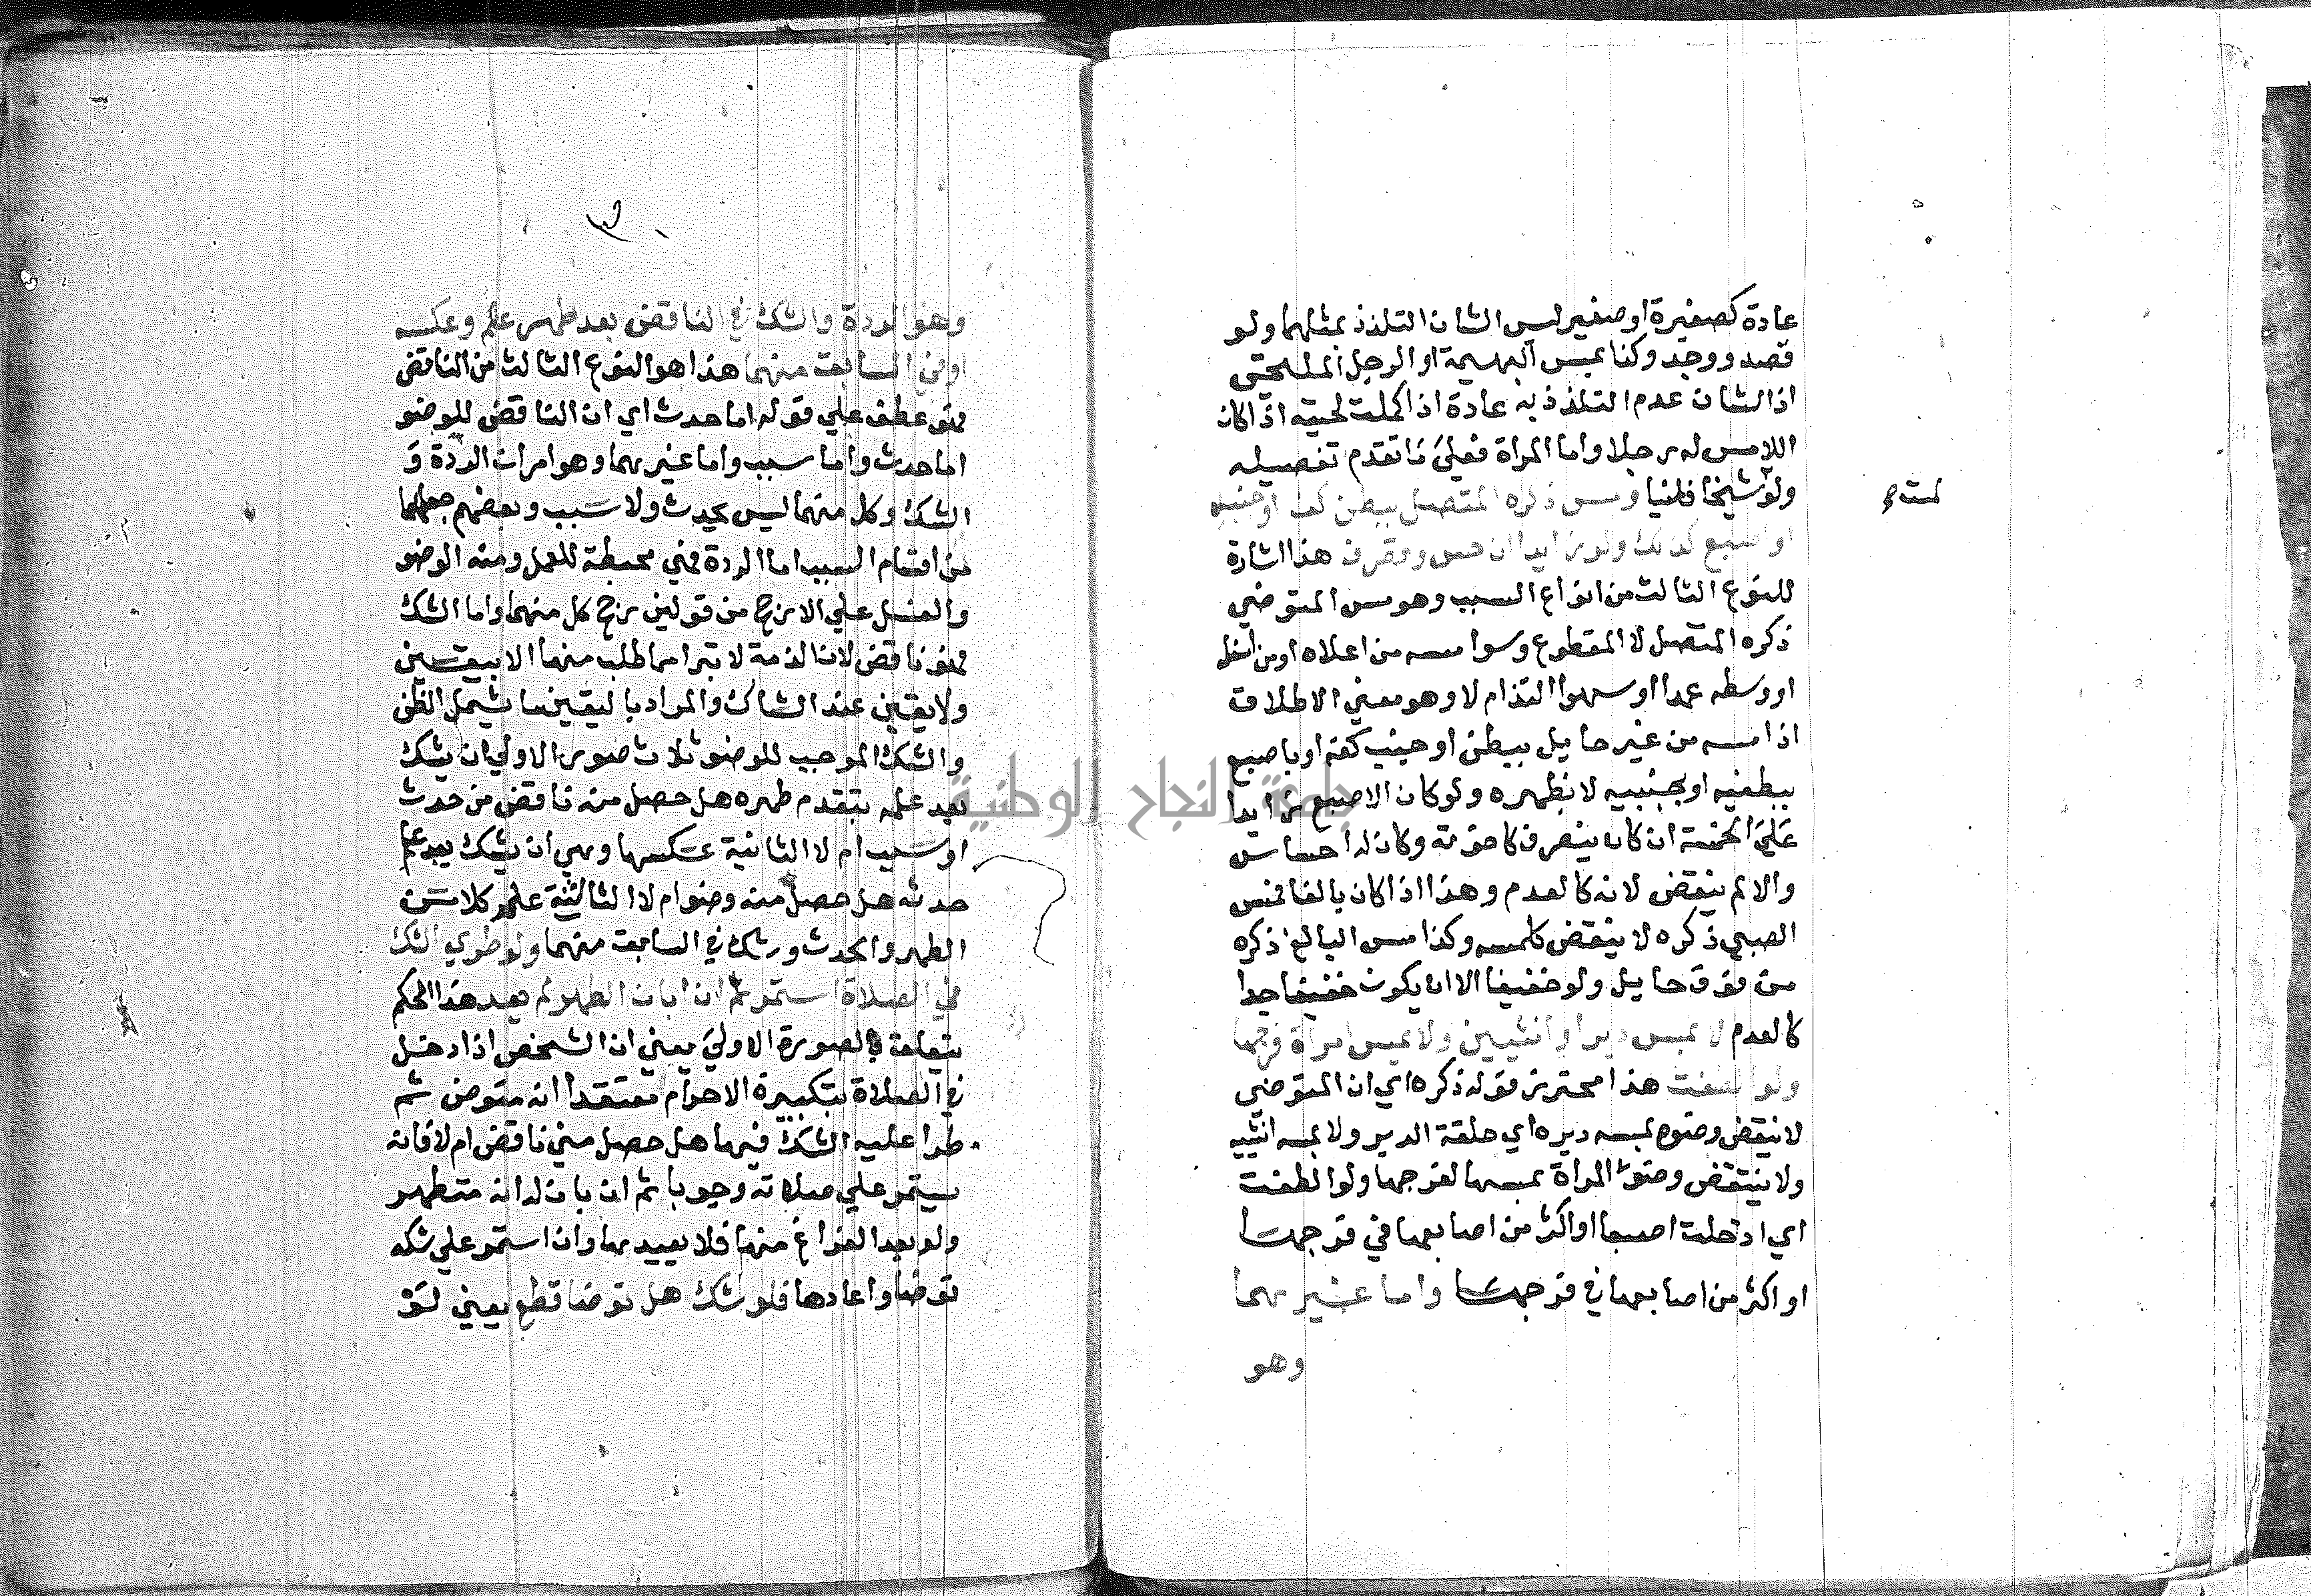 عادة كصغيرة او صغير ليس الشان التلذذ بمثلهما ولو
قصد ووجد وكذا بمس البهيمة او الرجل الملتحي
اذ الشان عدم التلذذ به عادة اذا كملت لحيته اذا كان
اللامس له رجلا واما المراة فعلي ما تقدم تفصيله
ولو شيخا فانيا ومس ذكره المتصل ببطن كف او جنبه
او اصبع كذلك ولو زايدا ان حس وتصرف هذا اشارة
للنوع الثالث من انواع السبب وهو مس المتوضي
ذكره المتصل لا المقطوع وسوا مسه من اعلاه او من اسفله
او وسطه عمدا او سهوا التذ ام لا وهو معني الاطلاق
اذا مسه من غير حايل ببطن او جنب كفه او باصبع
ببطنه او بجنبيه لا بظهره ولو كان الاصبع زايدا
علي الخمسة ان كان يتصرف كاخوته وكان له احساس
والا لم ينقض لانه كالعدم وهذا اذا كان بالغا فمس
الصبي ذكره لا ينقض كلمسه وكذا مس البالغ ذكره
من فوق حايل ولو خفيفا الا ان يكون خفيفا جدا
كالعدم لا بمس دبر او انثيين ولا بمس امراة فرجها
ولو الطفت هذا محترز قوله ذكره اي ان المتوضي
لا ينتقض وضوه بمسه دبره اي حلقة الدبر ولا بمسه انثييه
ولا ينتقض وضوء المراة بمسها لفرجها ولو الطفت
اي ادخلت اصبعا او اكثر من اصابعها في فرجها
او اكثر من اصابعها في فرجها واما غيرهما
وهو
وهو الردة والشك في الناقض بعد طهر علم وعكسه
او في السابق منهما هذا هو النوع الثالث من الناقض
فهو عطف علي قوله اما حدث اي ان الناقض للوضو
اما حدث واما سبب واما غيرهما وهو امران الردة و
الشك وكل منهما ليس بحدث ولا سبب وبعضهم جعلهما
من اقسام السبب اما الردة فهي محبطة للعمل ومنه الوضو
والغسل علي الارجح من قولين رجح كل منهما واما الشك
فهو ناقض لان الذمة لا تبرا مما طلب منها الا بيقين
ولا يقين عند الشاك والمراد باليقين ما يشمل الظن
والشك الموجب للوضو ثلاث صور الاولي ان يشك
بعد علمه بتقدم طهره هل حصل منه ناقض من حدث
او سبب ام لا الثانية عكسها وهي ان يشك بعد علم
حدثه هل حصل منه وضو ام لا الثالثة علم كلا من
الطهر والحدث وشك في السابق منهما ولو طري الشك
في الصلاة استمر ثم ان بان الطهر لم يعد هذا الحكم
يتعلق بالصورة الاولي يعني ان الشخص اذا دخل
في الصلاة بتكبيرة الاحرام معتقدا انه متوض ثم
طرا عليه الشك فيها هل حصل مني ناقض ام لا فانه
يستمر علي صلاته وجوبا ثم ان بان له انه متطهر
ولو بعد الفراغ منها فلا يعيدها وان استمر علي شكه
توضا واعادها فلو شك هل توضا قطع يعني لو
جامعة النجاح الوطنية